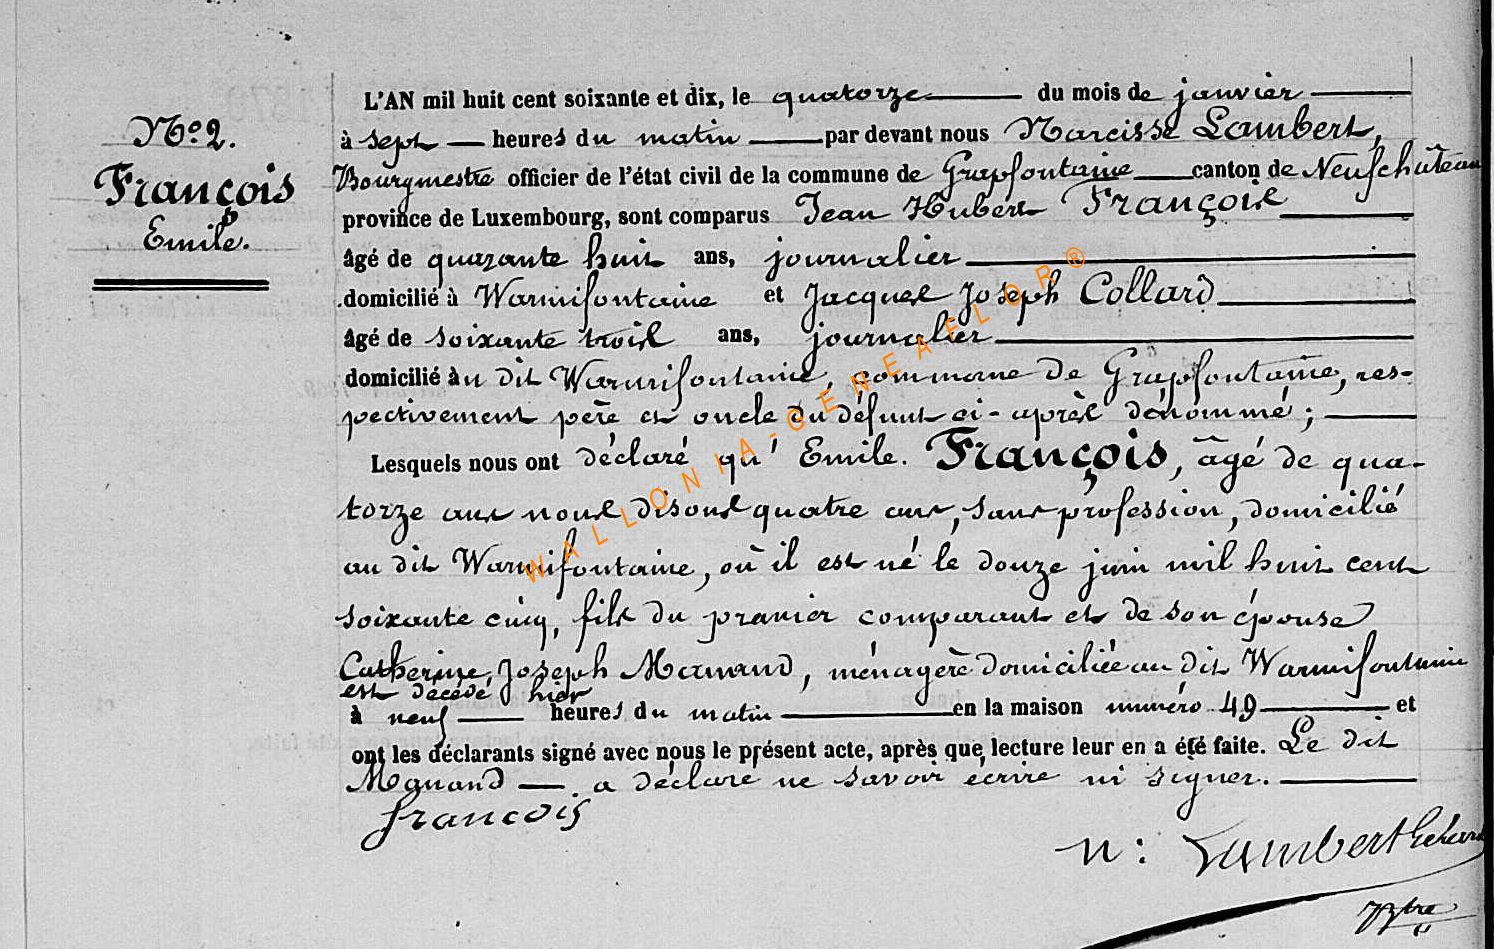 L'AN mil huit cent soixante et dix, le quatorze du mois de janvier
No. 2.
à sept heures du matin par devant nous Narcisse Lambert,
François
Bourgmestre officier de l'état civil de la commune de Grapfontaine canton de Neufchâteau
Emile.
province de Luxembourg, sont comparus Jean Hubert François
âgé de quarante huit ans, journalier
domicilié à Warmifontaine et Jacques Joseph Collard
âgé de soixante trois ans, journalier
domicilié àu dit Warmifontaine, commune de Grapfontaine, res-
pectivement père et oncle du défunt ci-après dénommé;
Lesquels nous ont déclaré qu'Emile. François, âgé de qua-
torze ans nous disons quatre ans, sans profession, domicilié
au dit Warmifontaine, où il est né le douze juin mil huit cent
soixante cinq, fils du premier comparant et de son épouse
Catherine, Joseph, ménagère domiciliée au dit Warmifontaine
est décédé hier
à neuf heures du matin en la maison numéro 49 et
ont les déclarants signé avec nous le présent acte, après que lecture leur en a été faite. Le dit
a déclaré ne savoir écrire ni signer.
françois
N: Lambert
WALLONIA-GENEAFLOR®